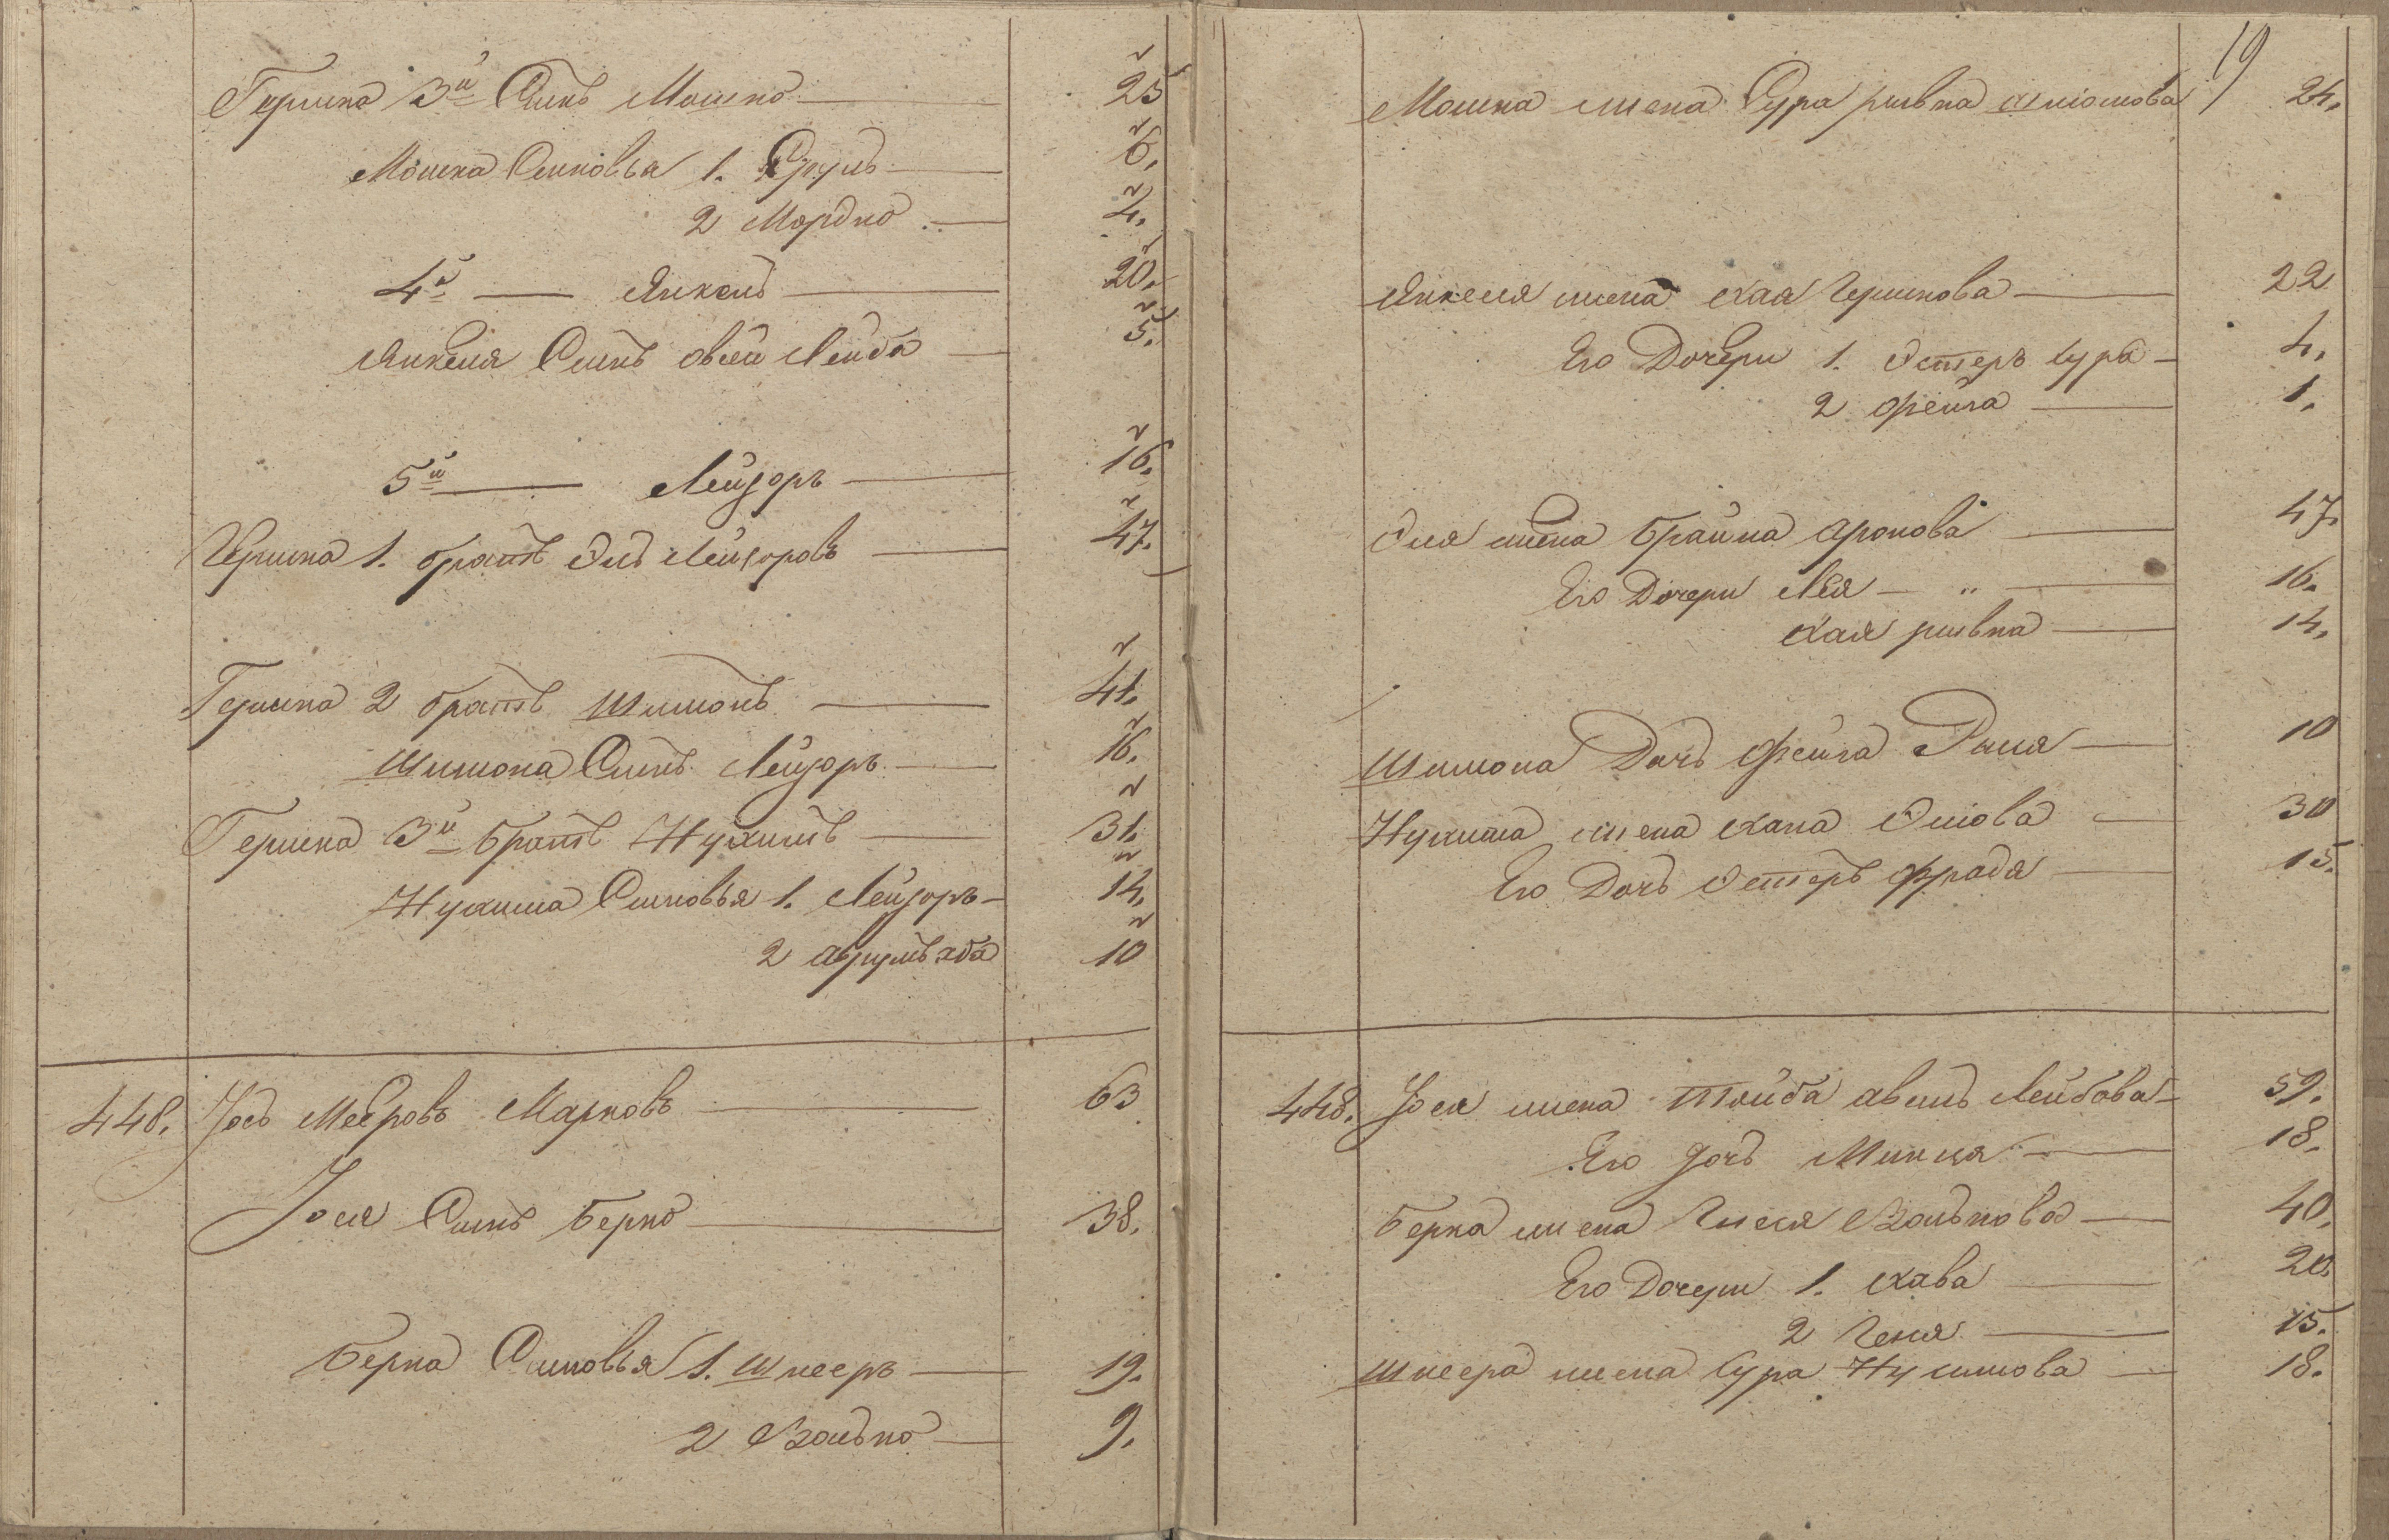 Гершка 3й Сынъ Мошко 25
Мошка Сыновья 1. Сруль 6.
2 Мордко 4.
4й Янкель 20.
Янкеля Сынъ овсей Лейба 5.
5й Лейзоръ 16.
Гершка 1. братъ Эль Лейзоровъ 47.
Гершка 2 братъ Шимонъ 41.
Шимона Сынъ Лейзоръ 16.
Гершка 3й братъ Нухимъ 31.
Нухима Сыновья 1. Лейзоръ 14.
2 10
448. Іось Мееровъ Марковъ 63
Іося Сынъ Берко 38.
Берка Сыновья 1. Шнееръ 19.
2 Волько 9.
19
Мошка жена Сура ривка 24.
Янкеля жена хая Гершкова 22
Его Дочери 1. Эстеръ Сура 4.
2 фейга 1.
Эля жена брайна Аронова 47.
Его Дочери Лея 16.
хая ривка 14.
Шимона Дочь фейга 10
Нухима жена хана Эліова 30
Его Дочь Эстеръ фрада 15.
448. Іося жена тойба Лейбова 59.
Его дочь Минця 18.
Берка жена Гнеся Волькова 40.
Его Дочери 1. хава 20.
2 Геня 15.
Шнеера жена Сура Нухимова 18.